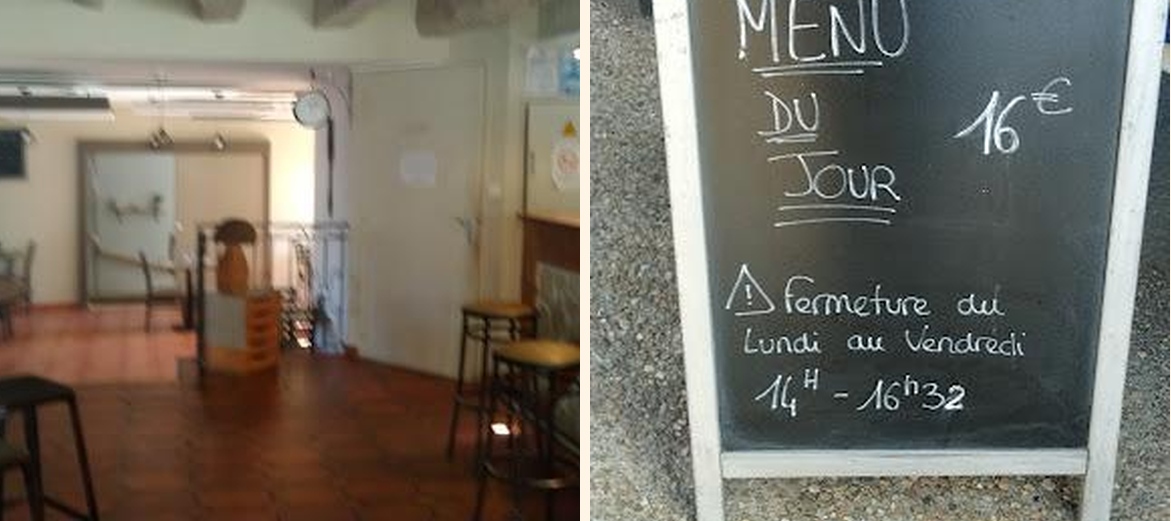 MENU
DU
JOUR
16€
⚠ Fermeture du
Lundi au Vendredi
14H - 16h32